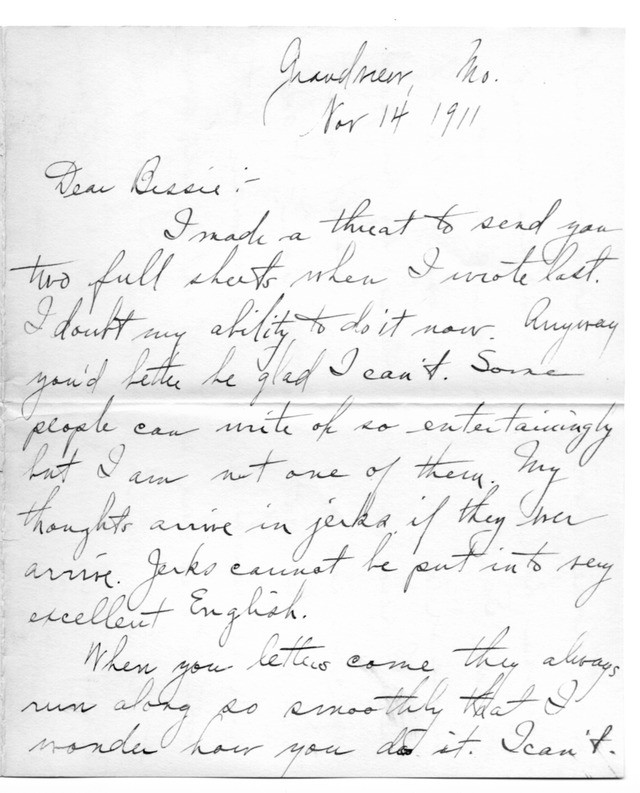 Grandview, Mo.
Nov 14 1911
Dear Bessie :-
I made a threat to send you
two full sheets when I wrote last.
I doubt my ability to do it now. Anyway
you'd better be glad I can't. Some
people can write oh so entertainingly
but I am not one of them. My
thoughts arrive in jerks if they ever
arrive. Jerks cannot be put into very
excellent English.
When you letters come they always
run along so smoothly that I
wonder how you do it. I can't.